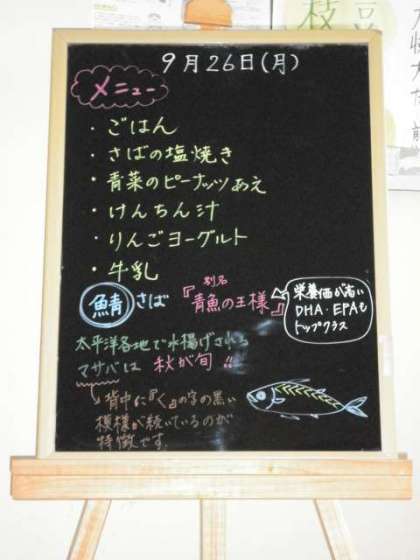 9月26日(月)
メニュー
・ごはん
・さばの塩焼き
・青菜のピーナッツあえ
・けんちん汁
・りんごヨーグルト
・牛乳
鯖 さば
別名
『青魚の王様』
栄養価が高い
DHA・EPAも
トップクラス
太平洋各地で水揚げされる
マサバは 秋が旬!!
背中に『く』の字の黒い
模様が続いているのが
特徴です。
豆
枝